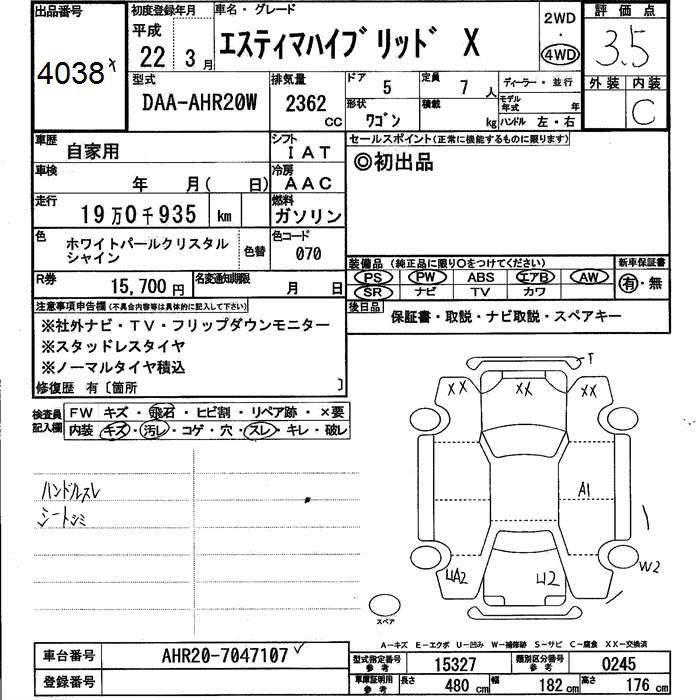 出品番号
4038
初度登録年月
平成
22 3月
車名・グレード
エスティマハイブリッド X
2WD
・
4WD
評価点
3.5
型式
DAA-AHR20W
排気量
2362
cc
ドア
5
定員
7 人
形状
ワゴン
積載
kg
ディーラー・並行
モデル年式 年
ハンドル 左・右
外装 内装
C
車歴
自家用
シフト
IAT
車検
年 月( 日)
冷房
AAC
走行
19万0千935 km
燃料
ガソリン
色
ホワイトパールクリスタル
シャイン
色替
色コード
070
R券
15,700円
名変通知期限
月 日
セールスポイント(正常に機能するものに限ります)
◎初出品
装備品 (純正品に限り○をつけてください)
新車保証書
PS PW ABS エアB AW
有・無
SR ナビ TV カワ
後日品
保証書・取説・ナビ取説・スペアキー
注意事項申告欄(不具合内容等は具体的に記入して下さい)
※社外ナビ・TV・フリップダウンモニター
※スタッドレスタイヤ
※ノーマルタイヤ積込
修復歴 有〔箇所 〕
検査員
記入欄
FW キズ・飛石・ヒビ割・リペア跡・×要
内装 キズ・汚レ・コゲ・穴・スレ・キレ・破レ
ハンドルスレ
シートシミ
T
XX XX XX
A1
UA2
U2
W2
スペア
A-キズ E-エクボ U-凹み W-補修跡 S-サビ C-腐食 XX-交換済
車台番号
AHR20-7047107
登録番号
型式指定番号
参考
15327
類別区分番号
参考
0245
車庫証明用
参考
長さ 480 cm 幅 182 cm 高さ 176 cm